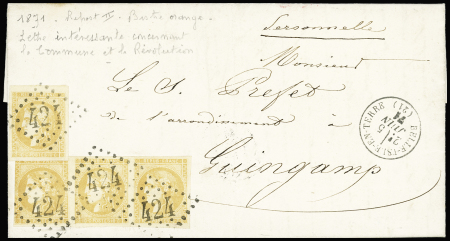 1871 - Report II - Bistre orange.
Lettre intéressante concernant
la Commune et la Révolution
Personnelle
Monsieur
Le S. Préfet
de l'arrondinement à
Guingamp
BELLE-ISLE-EN-TERRE (21)
5
21
JUIN
71
424
424
424
424